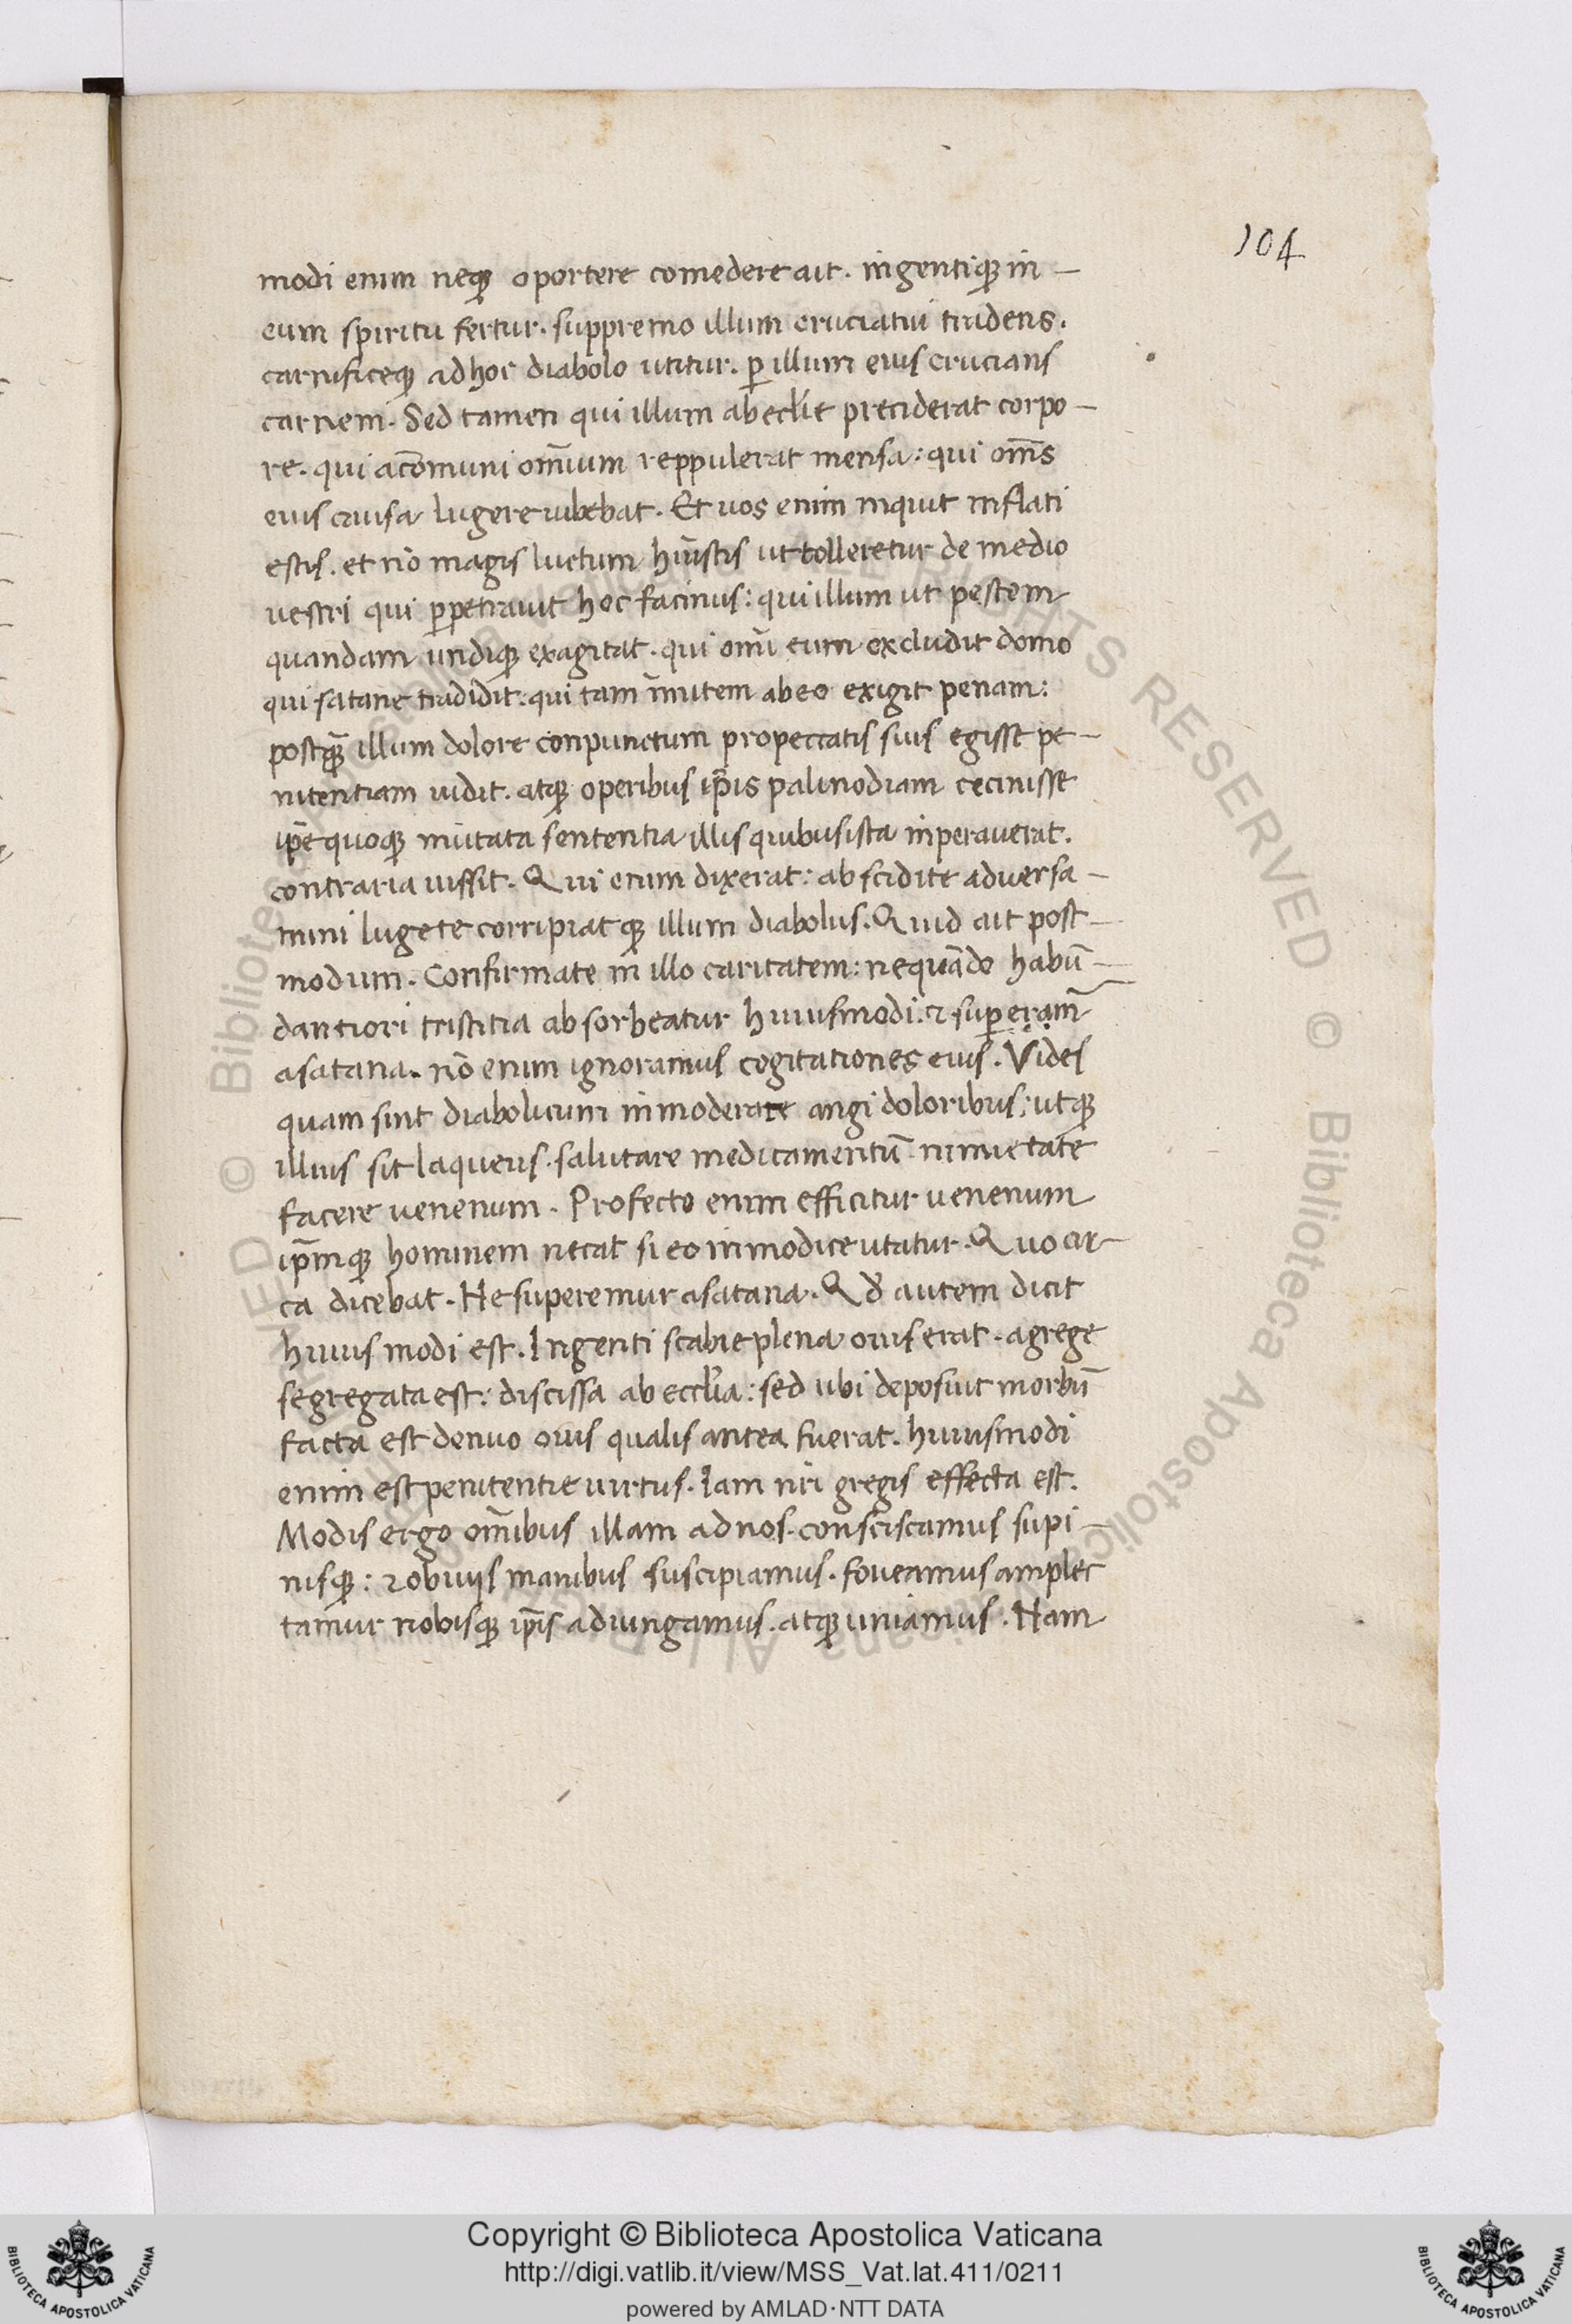 104
modi enim neqꝫ oportere comedere ait. ingentiqꝫ in-
eum spiritu fertur. suppremo illum cruciatui tradens.
carnificeqꝫ ad hoc diabolo utitur. ꝑ illum eius crucians
carnem. Sed tamen qui illum ab ecclie preciderat corpo-
re. qui a cōmuni omīum reppulerat mensa: qui om̄s
eius causa lugere iubebat. Et uos enim inquit inflati
estis. et nō magis luctum hūistis ut tolleretur de medio
uestri qui ꝑpetrauit hoc facinus: qui illum ut pestem
quandam undiqꝫ exagitat. qui omī eum excludit domo
qui satane tradidit: qui tam īmitem ab eo exigit penam:
postqꝫ̄ illum dolore conpunctum pro peccatis suis egisse pe-
nitentiam uidit. atqꝫ operibus ip̄is palinodiam cecinisse
ip̄e quoqꝫ mutata sententia illis quibus ista inperauerat.
contraria iussit. Qui enim dixerat: abscidite aduersa-
mini lugete corripiatqꝫ illum diabolus. Quid ait post-
modum. Confirmate in illo caritatem: ne quādo habū-
dantiori tristitia absorbeatur huiusmodi. ⁊ superam̄
a satana. nō enim ignoramus cogitationes eius. Vides
quam sint diabolicum inmoderate angi doloribus: utqꝫ
illius sit laqueus. salutare medicamentū nimietate
facere uenenum. Profecto enim efficitur uenenum
ip̄mqꝫ hominem necat si eo inmodice utatur. Quocir-
ca dicebat. Ne superemur a satana. Qd̓ autem dicit
huius modi est. Ingenti scabie plena ouis erat. a grege
segregata est: discissa ab ecclia: sed ubi deposuit morbū
facta est denuo ouis qualis antea fuerat. huiusmodi
enim est penitentie uirtus. Iam nr̄i gregis effecta est.
Modis ergo om̄ibus illam ad nos. consciscamus supi-
nisqꝫ: ⁊ obuijs manibus suscipiamus. foueamus amplec
tamur nobisqꝫ ip̄is adiungamus. atqꝫ uniamus. Nam
© Biblioteca Apostolica Vaticana ALL RIGHTS RESERVED
Copyright © Biblioteca Apostolica Vaticana
http://digi.vatlib.it/view/MSS_Vat.lat.411/0211
powered by AMLAD·NTT DATA
BIBLIOTECA APOSTOLICA VATICANA
BIBLIOTECA APOSTOLICA VATICANA